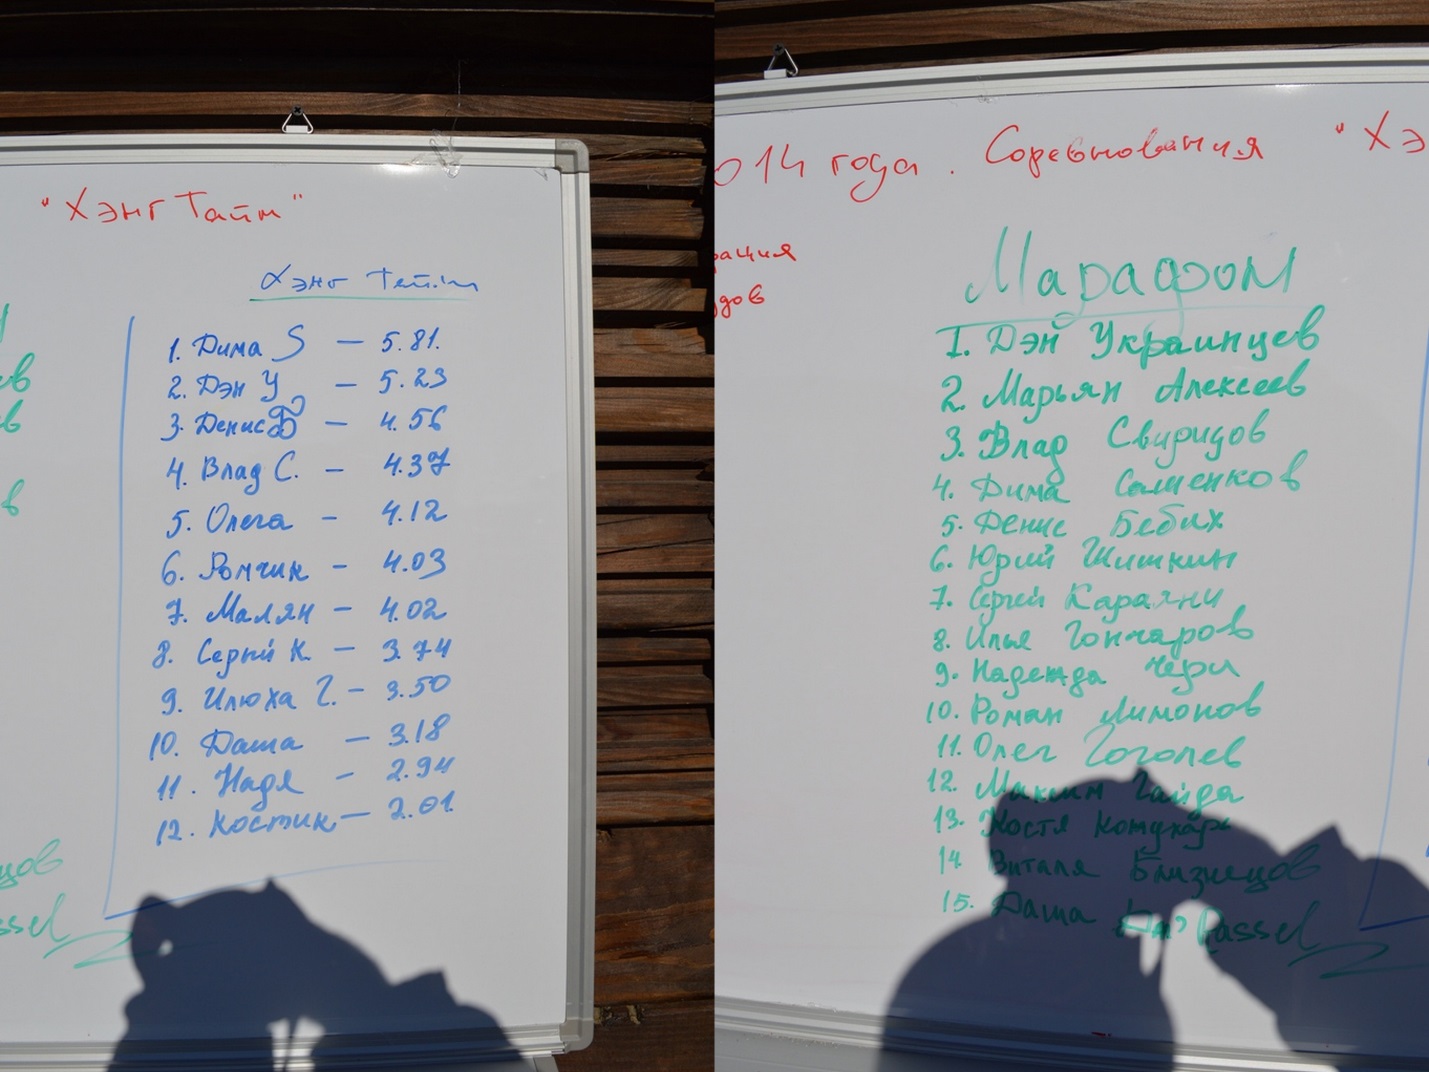 "Хэнг Тайм"
Хэнг Тайм
1. Дима S — 5.81.
2. Дэн У — 5.23
3. Денис — 4.56
4. Влад С. — 4.37
5. Олега — 4.12
6. Ромчик — 4.03
7. Малян — 4.02
8. Сергей К. — 3.74
9. Илюха Г. — 3.50
10. Даша — 3.18
11. Надя — 2.94
12. Костик — 2.01.
014 года. Соревнования "Хэ
рация
дов
Марафон
1. Дэн Украинцев
2. Марьян Алексеев
3. Влад Свиридов
4. Дима
5. Денис Бебих
6. Юрий Шишкин
7. Сергей Караяни
8. Илья Гончаров
9. Надежда Чери
10. Роман Лимонов
11. Олег Гоголев
12. Максим Гайда
13. Костя
14. Виталя Близнецов
15. Даша Passel